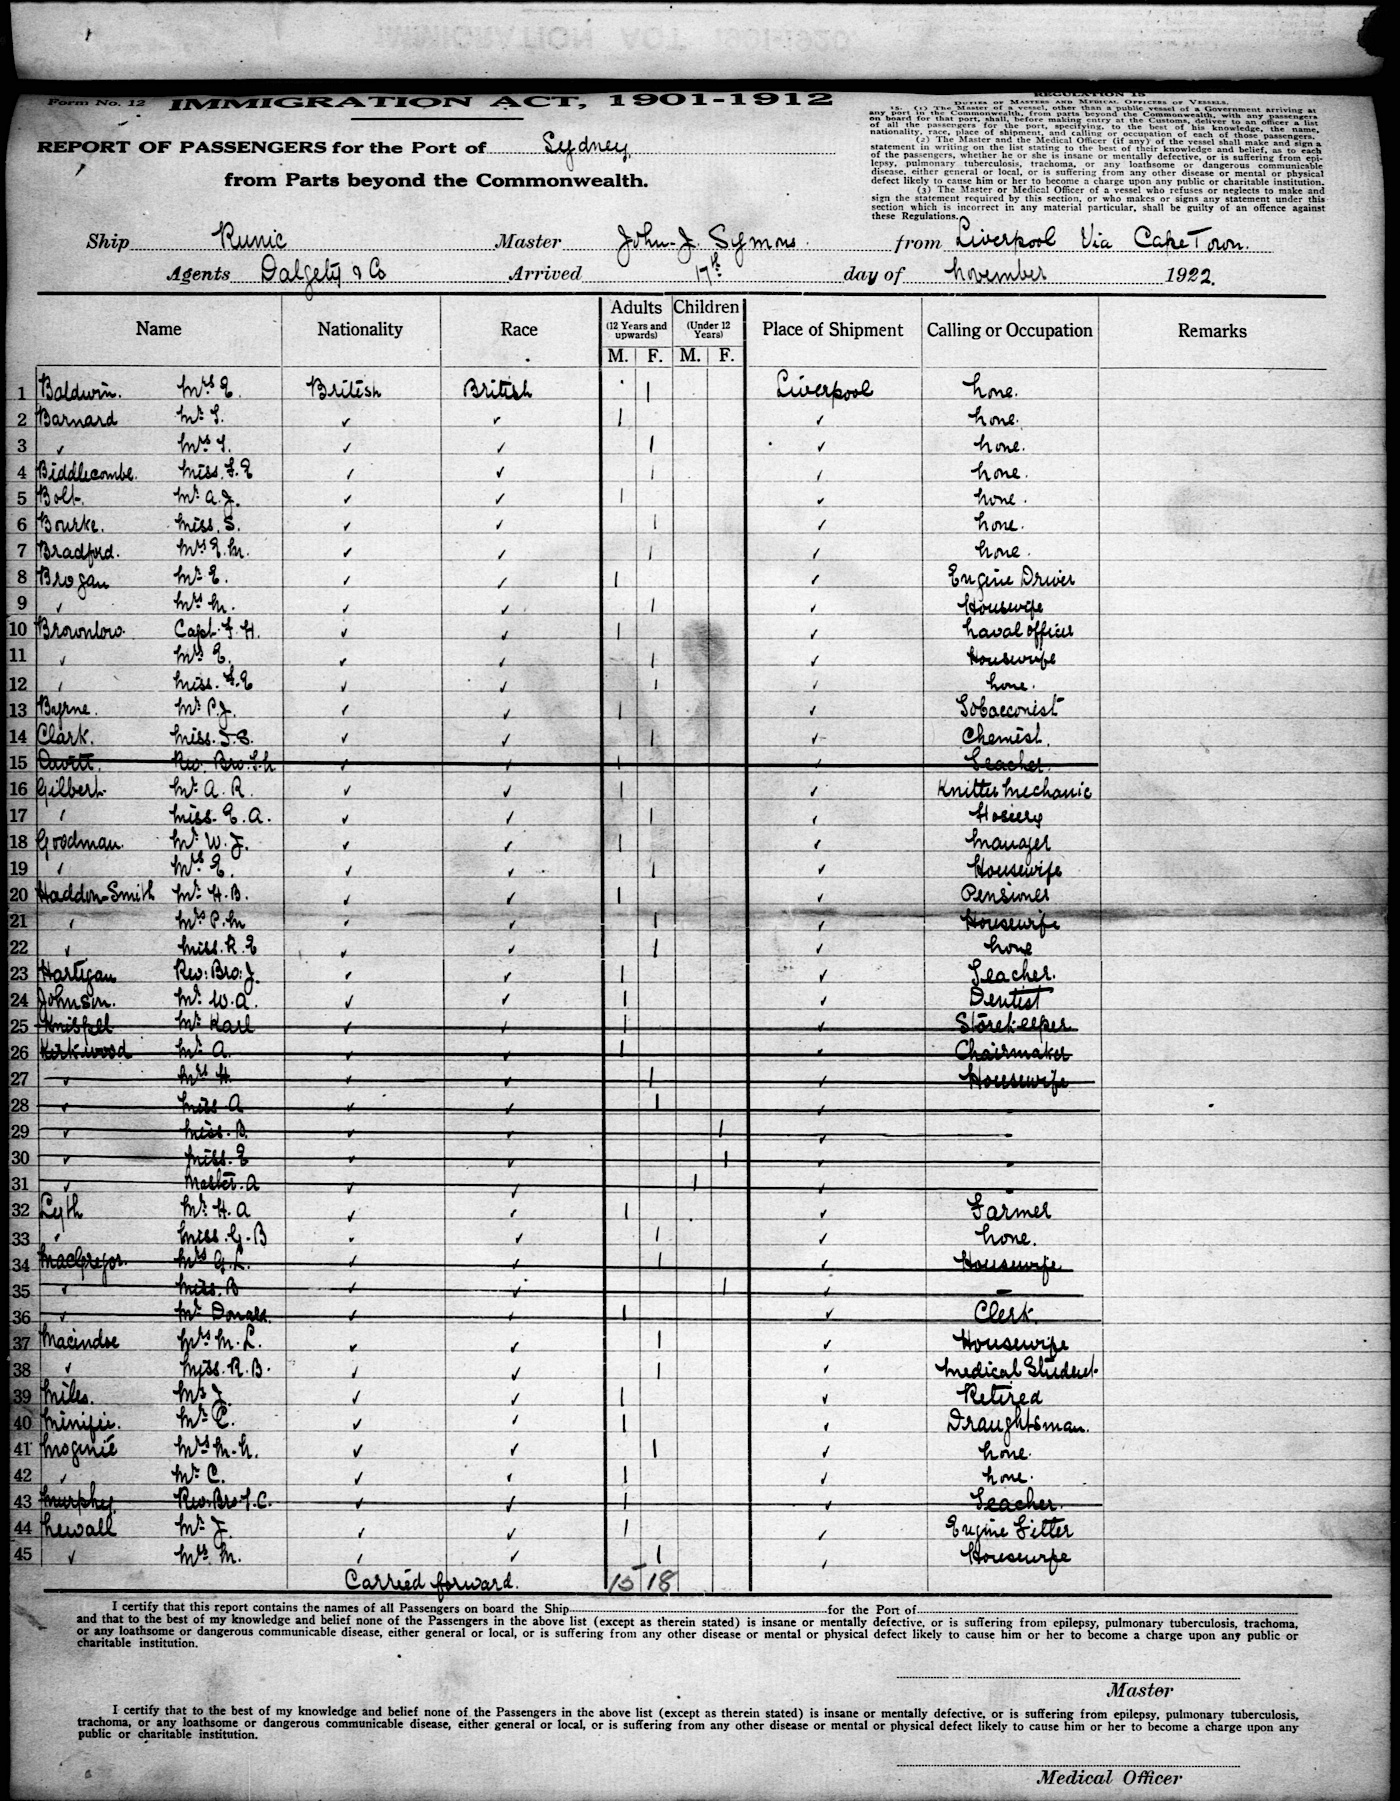 Form No. 12
IMMIGRATION ACT, 1901-1912
REPORT OF PASSENGERS for the Port of Sydney
from Parts beyond the Commonwealth.
REGULATION 15
DUTIES OF MASTERS AND MEDICAL OFFICERS OF VESSELS.
15. (1) The Master of a vessel, other than a public vessel of a Government arriving at
any port in the Commonwealth, from parts beyond the Commonwealth, with any passengers
on board for that port, shall, before making entry at the Customs, deliver to an officer a list
of all the passengers for the port, specifying, to the best of his knowledge, the name,
nationality, race, place of shipment, and calling or occupation of each of those passengers.
(2) The Master and the Medical Officer (if any) of the vessel shall make and sign a
statement in writing on the list stating to the best of their knowledge and belief, as to each
of the passengers, whether he or she is insane or mentally defective, or is suffering from epi-
lepsy, pulmonary tuberculosis, trachoma, or any loathsome or dangerous communicable
disease, either general or local, or is suffering from any other disease or mental or physical
defect likely to cause him or her to become a charge upon any public or charitable institution.
(3) The Master or Medical Officer of a vessel who refuses or neglects to make and
sign the statement required by this section, or who makes or signs any statement under this
section which is incorrect in any material particular, shall be guilty of an offence against
these Regulations.
Ship Runic Master John J. Symons. from Liverpool Via Cape Town.
Agents Dalgety & Co Arrived 17th day of November 1922.
Name Nationality Race Adults (12 Years and upwards) M. F. Children (Under 12 Years) M. F. Place of Shipment Calling or Occupation Remarks
1 Baldwin. Mrs E. British British 1 Liverpool None.
2 Barnard Mr. S. ✓ ✓ 1 ✓ None.
3 " Mrs S. ✓ ✓ 1 ✓ None.
4 Biddlecombe. Miss. F. E ✓ ✓ 1 ✓ None.
5 Bolt. Mr. A. J. ✓ ✓ 1 ✓ None.
6 Bourke. Miss. S. ✓ ✓ 1 ✓ None.
7 Bradford. Mrs E. M. ✓ ✓ 1 ✓ None.
8 Brogan Mr. E. ✓ ✓ 1 ✓ Engine Driver
9 " Mrs M. ✓ ✓ 1 ✓ Housewife
10 Brownlow. Capt. F. H. ✓ ✓ 1 ✓ Naval Officer
11 " Mrs E. ✓ ✓ 1 ✓ Housewife
12 " Miss. F. E ✓ ✓ 1 ✓ None.
13 Byrne. Mr. P. J. ✓ ✓ 1 ✓ Tobacconist
14 Clark. Miss. S. S. ✓ ✓ 1 ✓ Chemist.
15 Rev. Bro. ✓ ✓ 1 ✓ Teacher.
16 Gilbert. Mr. A. R. ✓ ✓ 1 ✓ Knitter Mechanic
17 " Miss. E. A. ✓ ✓ 1 ✓ Hosiery
18 Goodman. Mr. W. J. ✓ ✓ 1 ✓ Manager
19 " Mrs E. ✓ ✓ 1 ✓ Housewife
20 Haddon-Smith Mr. H. B. ✓ ✓ 1 ✓ Pensioner
21 " Mrs P. M ✓ ✓ 1 ✓ Housewife
22 " Miss. R. E ✓ ✓ 1 ✓ None
23 Hartigan Rev: Bro: J. ✓ ✓ 1 ✓ Teacher.
24 Johnson. Mr. W. A. ✓ ✓ 1 ✓ Dentist
25 Knispel Mr. Karl ✓ ✓ 1 ✓ Storekeeper
26 Kirkwood Mr. A. ✓ ✓ 1 ✓ Chairmaker
27 " Mrs H. ✓ ✓ 1 ✓ Housewife
28 " Miss. A ✓ ✓ 1 ✓ -
29 " Miss. B. ✓ ✓ 1 ✓ -
30 " Miss. E ✓ ✓ 1 ✓ -
31 " Master. A ✓ ✓ 1 ✓ -
32 Lyth Mr. H. A ✓ ✓ 1 ✓ Farmer
33 " Miss. G. B ✓ ✓ 1 ✓ None.
34 MacGregor. Mrs G. L. ✓ ✓ 1 ✓ Housewife
35 " Miss. B ✓ ✓ 1 ✓ -
36 " Mr. Donald. ✓ ✓ 1 ✓ Clerk.
37 Macindoe Mrs M. L. ✓ ✓ 1 ✓ Housewife
38 " Miss. R. B. ✓ ✓ 1 ✓ Medical Student
39 Miles. Mr. J. ✓ ✓ 1 ✓ Retired
40 Minifie. Mr. C. ✓ ✓ 1 ✓ Draughtsman.
41 Moginie Mrs M. N. ✓ ✓ 1 ✓ None.
42 " Mr. C. ✓ ✓ 1 ✓ None.
43 Murphy. Rev. Bro. T. C. ✓ ✓ 1 ✓ Teacher.
44 Newall Mr. J. ✓ ✓ 1 ✓ Engine Fitter
45 " Mrs M. ✓ ✓ 1 ✓ Housewife
Carried forward. 15 18
I certify that this report contains the names of all Passengers on board the Ship for the Port of
and that to the best of my knowledge and belief none of the Passengers in the above list (except as therein stated) is insane or mentally defective, or is suffering from epilepsy, pulmonary tuberculosis, trachoma,
or any loathsome or dangerous communicable disease, either general or local, or is suffering from any other disease or mental or physical defect likely to cause him or her to become a charge upon any public or
charitable institution.
Master
I certify that to the best of my knowledge and belief none of the Passengers in the above list (except as therein stated) is insane or mentally defective, or is suffering from epilepsy, pulmonary tuberculosis,
trachoma, or any loathsome or dangerous communicable disease, either general or local, or is suffering from any other disease or mental or physical defect likely to cause him or her to become a charge upon any
public or charitable institution.
Medical Officer